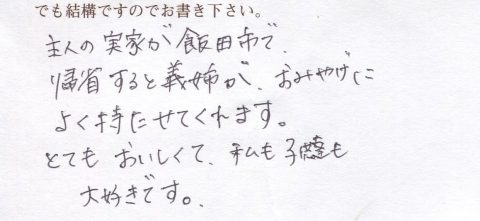 でも結構ですのでお書き下さい。
主人の実家が飯田市で、
帰省すると義姉が、おみやげに
よく持たせてくれます。
とても おいしくて、私も子供達も
大好きです。